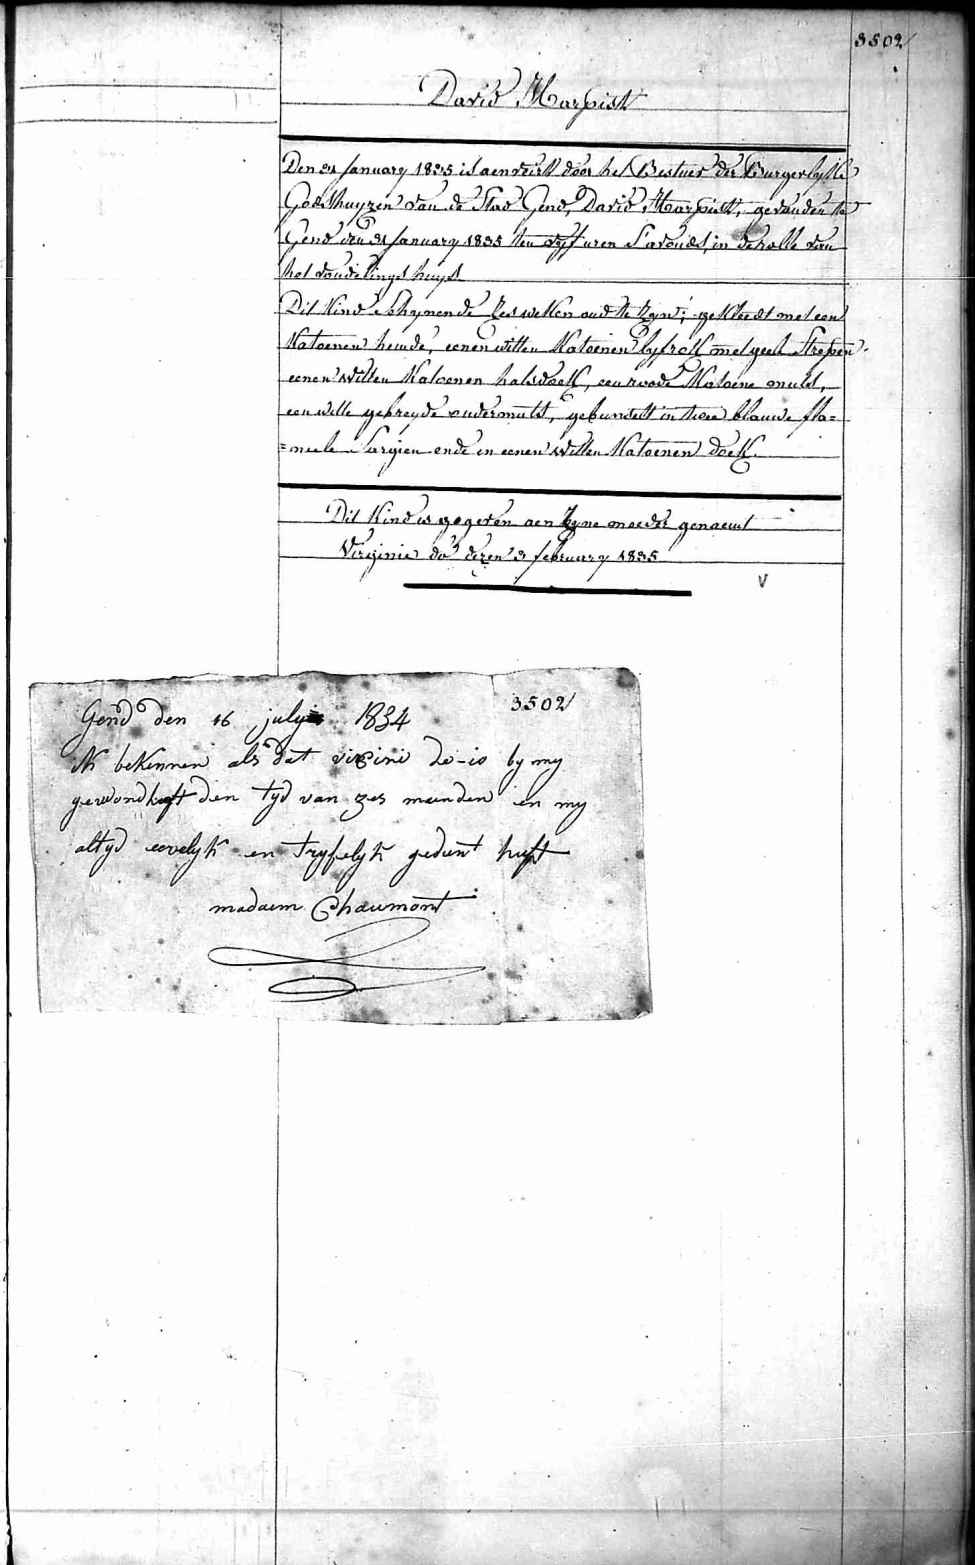 3502
David Harpist
Den 31 January 1835 is aenveirt door het Bestuer der Burgerlyke
Godshuyzen van de Stad Gend, David Harpist, gevonden te
Gend den 31 January 1835 ten vyf uren s'avonds, in de rolle van
het vondelingshuys
Dit Kind schynende zes weken oud te zyn; gekleedt met een
Katoenen hemde, eenen witten Katoenen lyfrok met geele strepen
eenen witten Katoenen halsdoek, een roode Katoene muts,
een witte gebreyde ondermuts, gebunselt in twee blauwe fla=
=neele Sargien ende in eenen witten Katoenen doek.
Dit Kind is gegeven aen zyne moeder genaemt
Virginie do dezen 3 february 1835
V
3502
Gend den 16 july 1834
ik bekennen als dat virsini de-io by my
gewondheeft den tyd van zes maenden en my
altyd eerelyk en trypelyk gedient heeft
madaem Chaumont